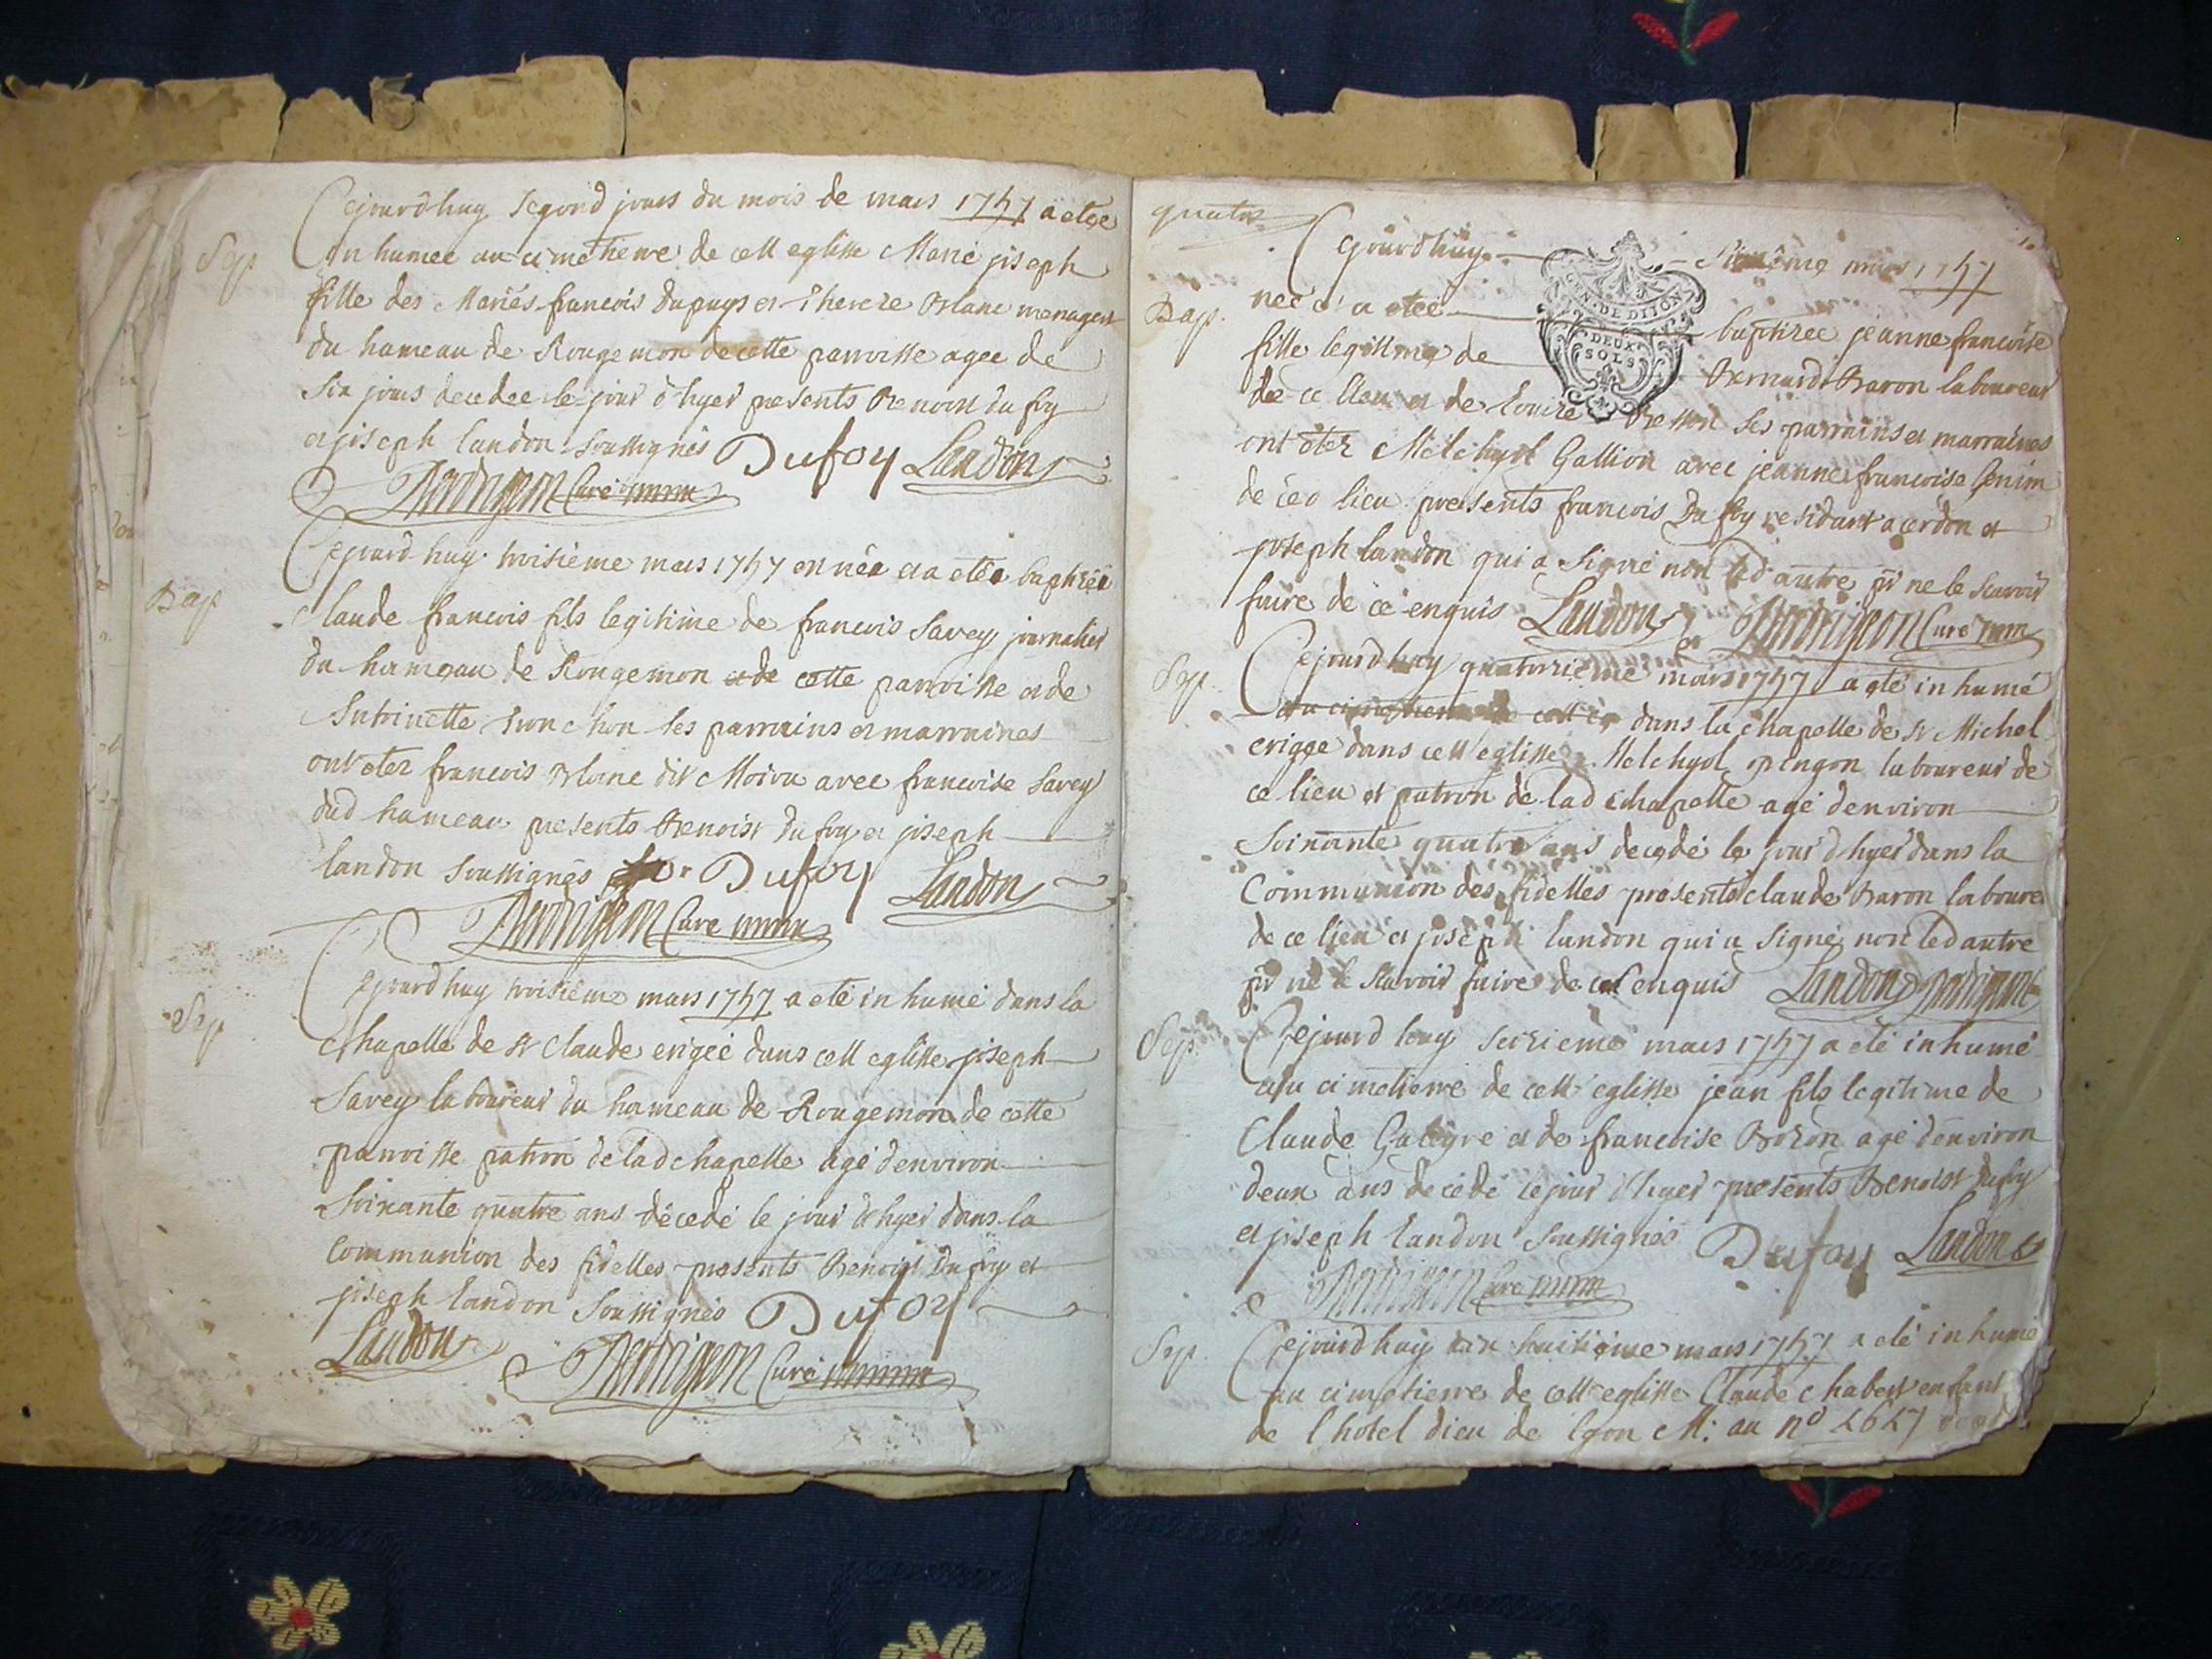 Cejourdhuy segond jours du mois de mars 1757 a etee
Sep
in humee au cimetierre de cett eglisse Marie joseph
fille des Mariés francois Dupuys et Therese Blanc menagers
du hameau de Rougemon de cette parroisse agee de
six jours decedee le jour d'hyer presents Benoist du foy
et joseph landon soussignés Dufoy Landon
Curé
Cejourd huy troisième mars 1757 est née et a etée baptisée
Bap
Claude francois fils legitime de francois Savey journalier
du hameau de Rougemon et de cette parroisse et de
Antoinette ses parrains et marraines
ont eter francois Blanc dit Moiou avec francoise Savey
dud hameau presents Benoist du foy et joseph
landon soussignés Dufoy Landon
Curé
Cejourd huy troisième mars 1757 a eté in humé dans la
Sep
chapelle de St Claude erigeé dans cett eglisse joseph
Savey laboureur du hameau de Rougemon de cette
parroisse patron de lad chapelle agé denviron
soixante quatre ans décedé le jour d'hyer dans la
communion des fidelles presents Benoist Dufoy et
joseph landon soussignés Dufoy
Landon Curé
quatre
Cejourdhuy mars 1757
GEN. DE DIJON
DEUX SOLS
Bap.
neé et a eteé baptizée jeanne francoise
fille legitime de Bernard Baron laboureur
de ce lieu et de louise ses parrains et marraines
ont eter Melchyol Gallion avec jeanne francoise
de ced lieu presents francois Du foy residant a cerdon et
joseph landon qui a signé non led autre pr ne le scavoir
faire de ce enquis Landon Curé
Sep.
Cejourdhuy quatorzieme mars 1757 a eté in humé
au cimetierre de cett eg dans la chapelle de St Michel
erigee dans cett eglisse Melchyol pingon laboureur de
ce lieu et patron de lad chapelle agé denviron
soixante quatre ans decedé le jour d hyer dans la
Communion des fidelles presents claude Baron laboure
de ce lieu et joseph landon qui a signé non led autre
pr ne le scavoir faire de ce enquis Landon
Sep.
Cejourd huy seizieme mars 1757 a eté inhumé
au cimetierre de cett eglisse jean fils legitime de
Claude et de francoise Bozon agé denviron
deux ans décedé le jour d'hyer presents Benoist dufoy
et joseph landon soussignés Dufoy Landon
Curé
Sep.
Cejourdhuy dix huitième mars 1757 a eté in humé
au cimetierre de cett eglisse Claude chabert enfant
de l hotel dieu de lyon M: au no